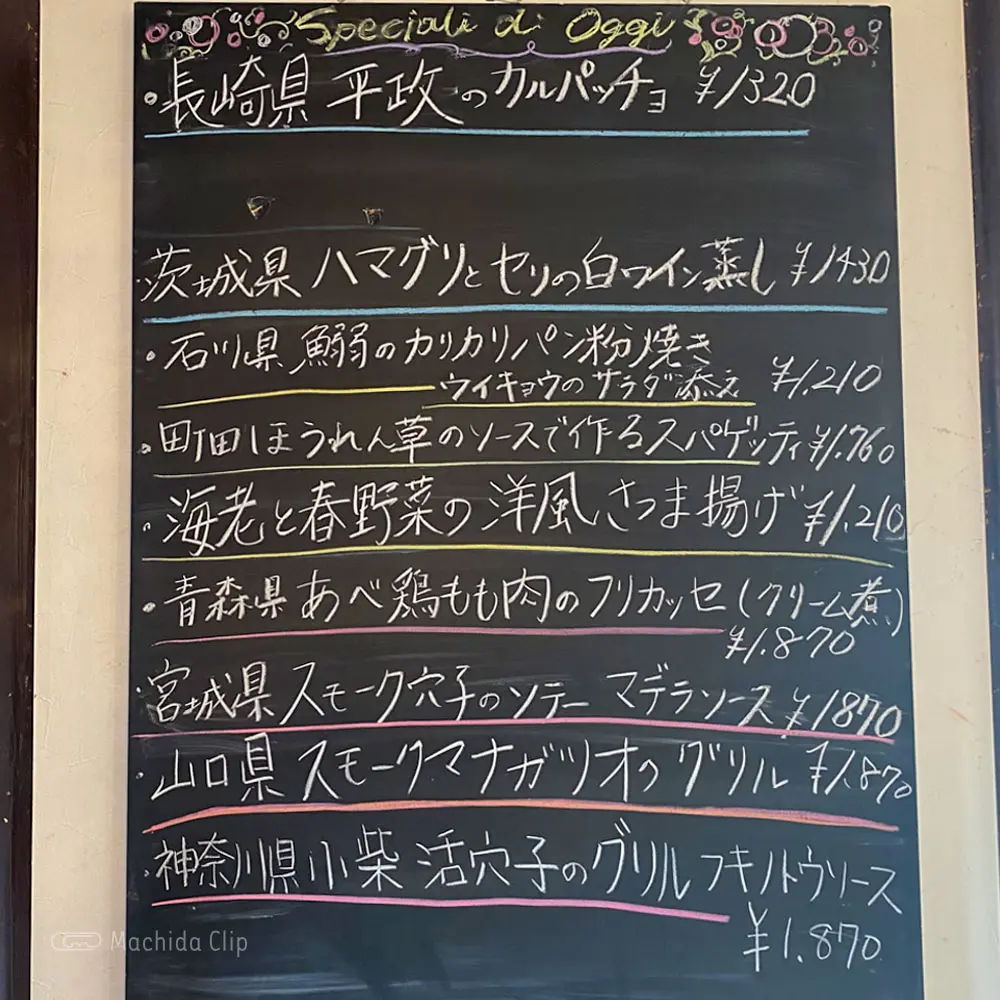 Speciali di Oggi
・長崎県 平政のカルパッチョ ¥1320
・茨城県 ハマグリとセリの白ワイン蒸し ¥1430
・石川県 鰯のカリカリパン粉焼き
ウイキョウのサラダ添え ¥1,210
・町田ほうれん草のソースで作るスパゲッティ ¥1.760
・海老と春野菜の洋風さつま揚げ ¥1.210
・青森県 あべ鶏もも肉のフリカッセ(クリーム煮)
¥1.870
・宮城県 スモーク穴子のソテー マデラソース ¥1870
・山口県 スモークマナガツオのグリル ¥1.870
・神奈川県 小柴 活穴子のグリル フキノトウソース
¥1.870
Machida Clip